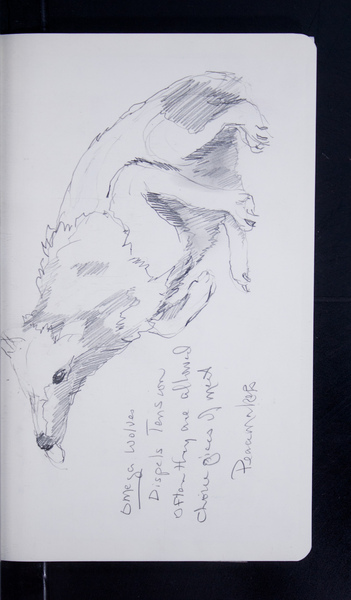 Omega Wolves
Dispels Tension
Often they are allowed
choice pieces of meat